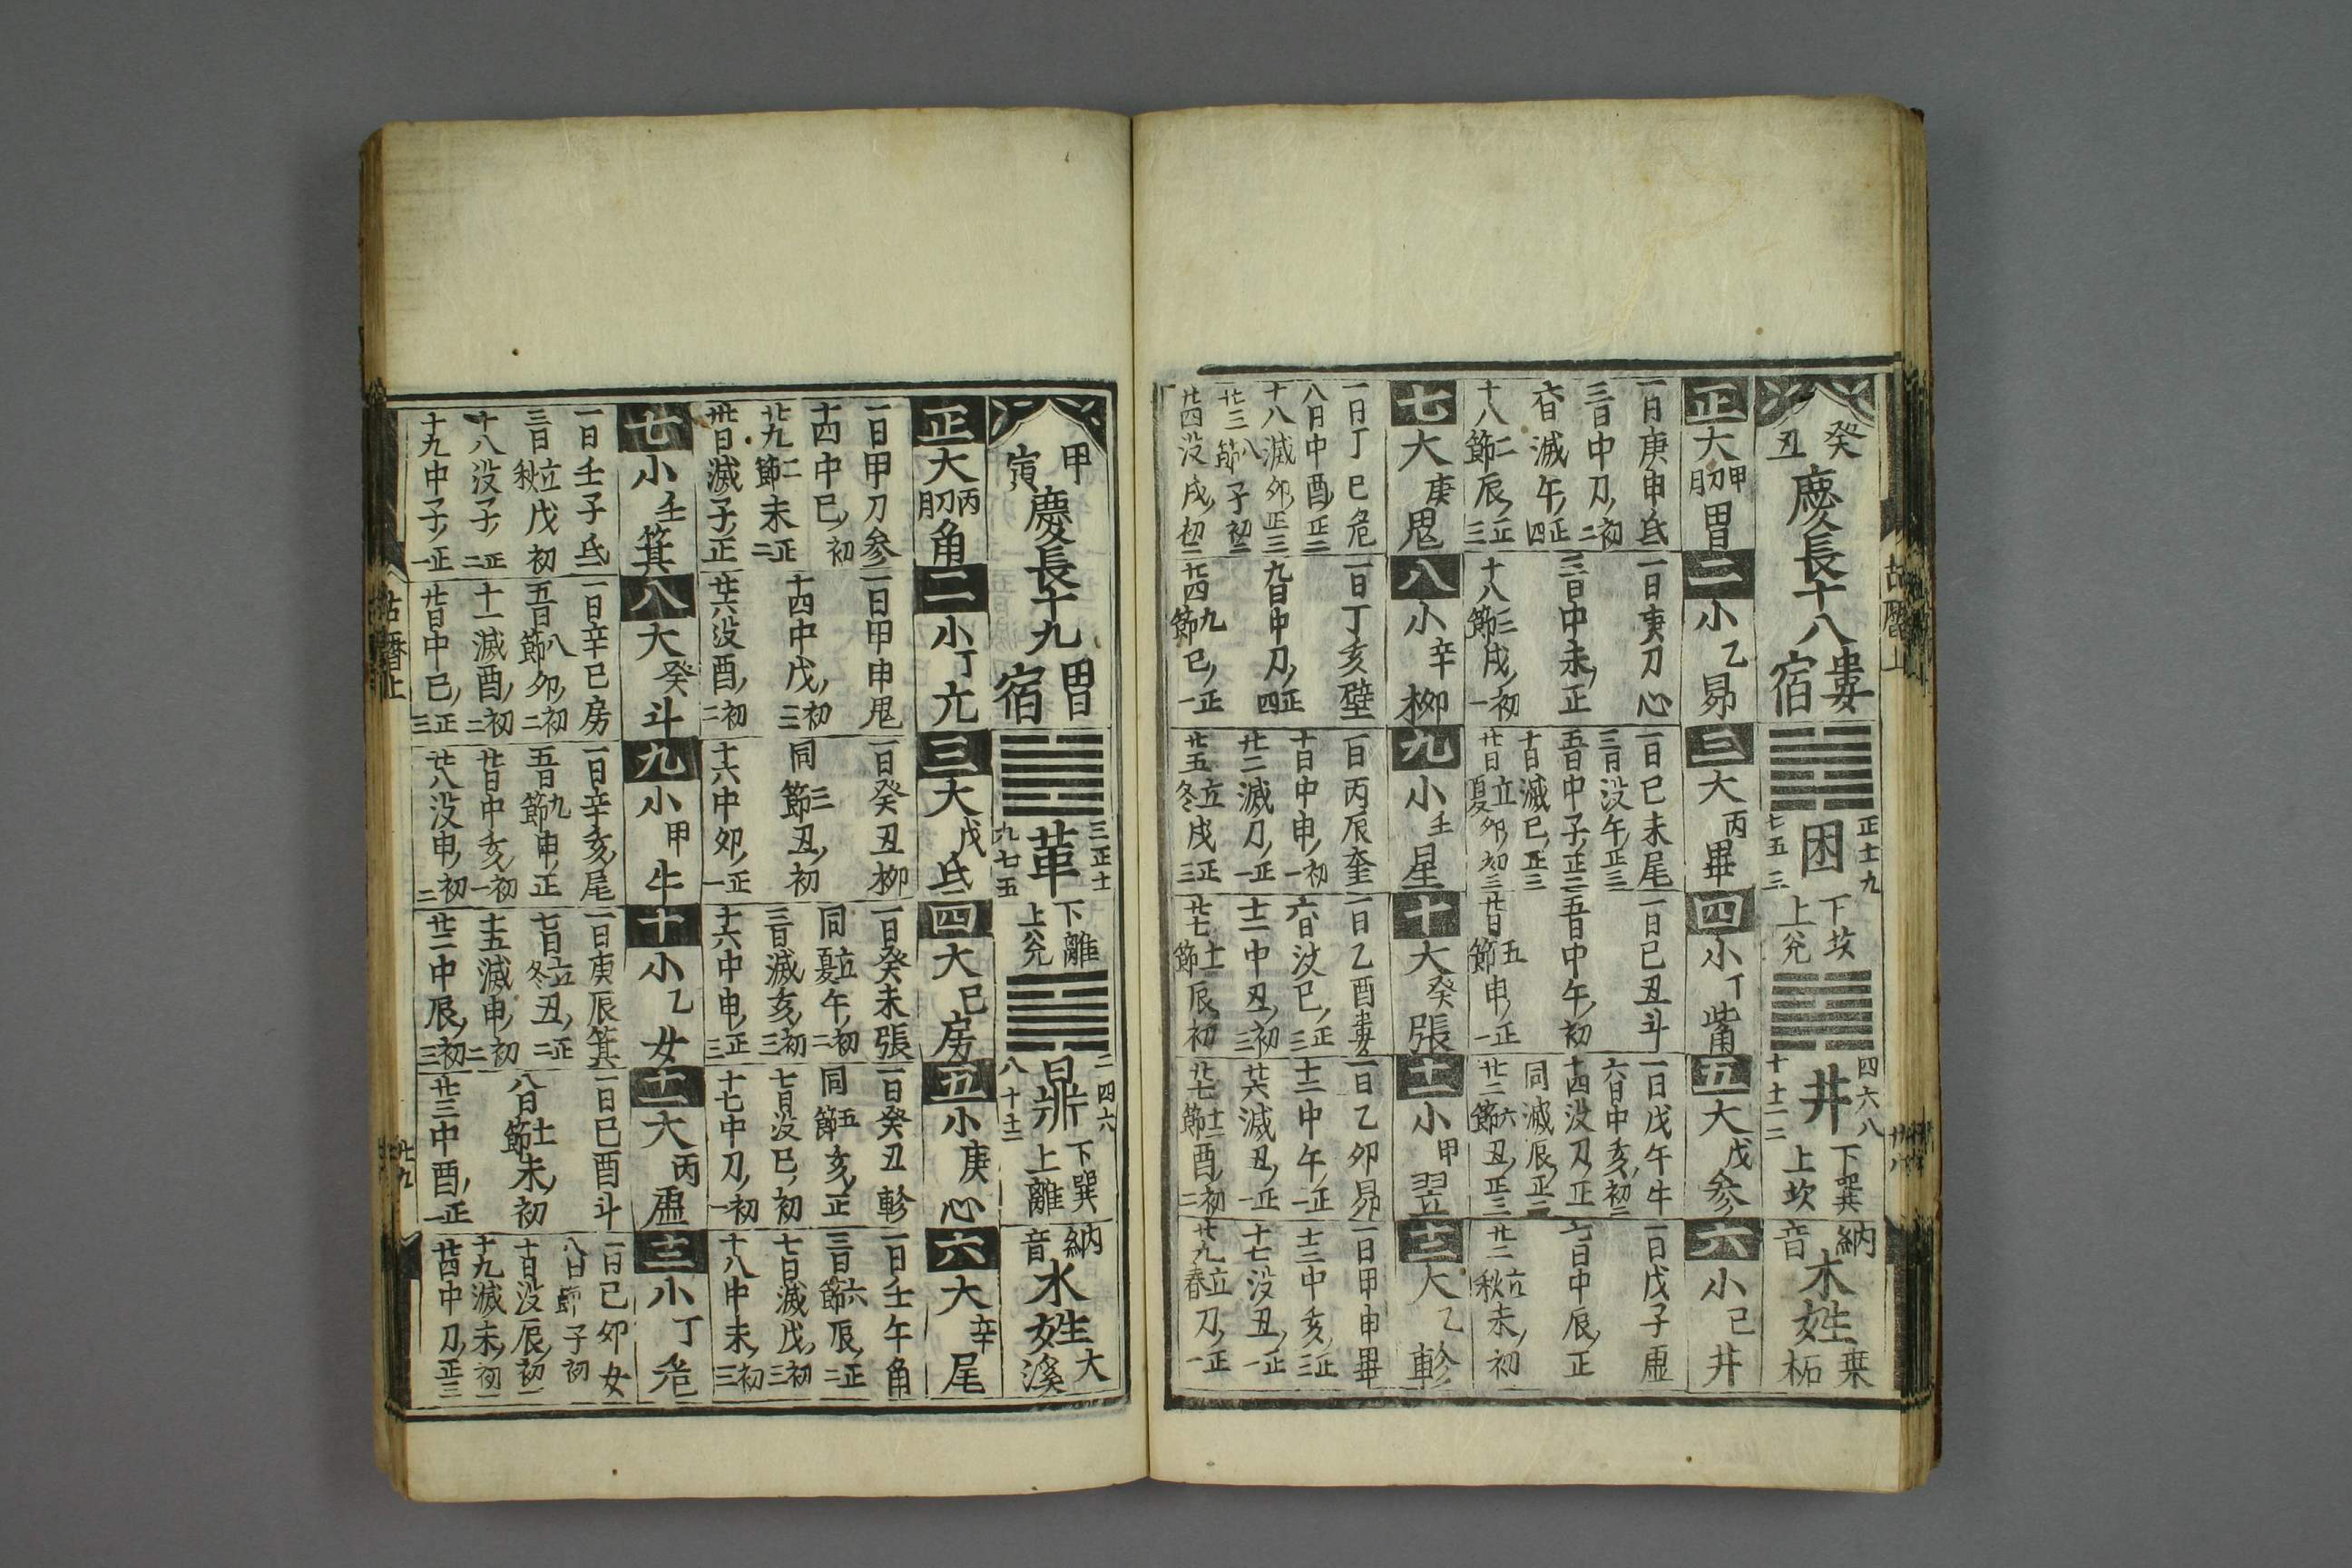 癸丑
慶長十八
婁宿
困
正十一九
七五三
下坎
上兊
井
四六八
十十二二
下巽
上坎
納音
木姓
桒柘
正大 甲刀月 胃
一日庚申氐
三日中刀初二
六日滅午正四
十八二節辰正三
二小 乙 昴
一日庚刀心
三日中未正
十八三節戌初一
三大 丙 畢
一日己未尾
三日没午正三
五日中子正二
十日滅巳正三
廿日立夏卯初三
四小 丁 觜
一日己丑斗
五日中午初
廿日五節申正一
五大 戊 参
一日戊午牛
六日中亥初三
十四没刀正
同滅辰正二
廿二六節丑正三
六小 己 井
一日戊子虚
七日中辰正
廿二立秋未初
七大 庚 鬼
一日丁巳危
八日中酉正二
十八滅卯正三
廿三八節子初二
廿四没戌初二
八小 辛 柳
一日丁亥壁
九日中刀正四
廿四九節巳正一
九小 壬 星
一日丙辰奎
十日中申初一
廿二滅刀正一
廿五立冬戌正三
十大 癸 張
一日乙酉婁
六日没巳正三
十二中丑初三
廿七十一節辰初
十一小 甲 翌
一日乙卯昴
十二中午正一
廿六滅丑正一
廿七十二節酉初二
十二大 乙 軫
一日甲申畢
十三中亥正三
十七没丑正一
廿九立春刀正一
古暦上
廿八
甲寅
慶長十九
胃宿
革
三正十一
九七五
下離
上兊
鼎
二四六
八十十二
下巽
上離
納音
水姓
大溪
正大 丙刀月 角
一日甲刀参
十四中巳初
廿九二節未正二
卅日滅子正
二小 丁 亢
一日甲申鬼
十四中戌初三
廿六没酉初二
三大 戊 氐
一日癸丑柳
同三節丑初
十六中卯正一
四大 己 房
一日癸未張
同立夏午初二
三日滅亥初三
十六中申正三
五小 庚 心
一日癸丑軫
同五節亥正
七日没巳初
十七中刀初一
六大 辛 尾
一日壬午角
三日六節辰正二
七日滅戌初三
十八中未初三
七小 壬 箕
一日壬子氐
三日立秋戌初
十八没子正二
十九中子正一
八大 癸 斗
一日辛巳房
五日八節卯初二
十一滅酉初二
廿日中巳正三
九小 甲 牛
一日辛亥尾
五日九節申正
廿日中亥初一
廿八没申初二
十小 乙 女
一日庚辰箕
七日立冬丑正二
十五滅申初二
廿二中辰初三
十一大 丙 虚
一日己酉斗
八日十一節未初
廿三中酉正一
十二小 丁 危
一日己卯女
八日節子初
十日没辰初一
十九滅未初二
廿四中刀正三
古暦上
廿九